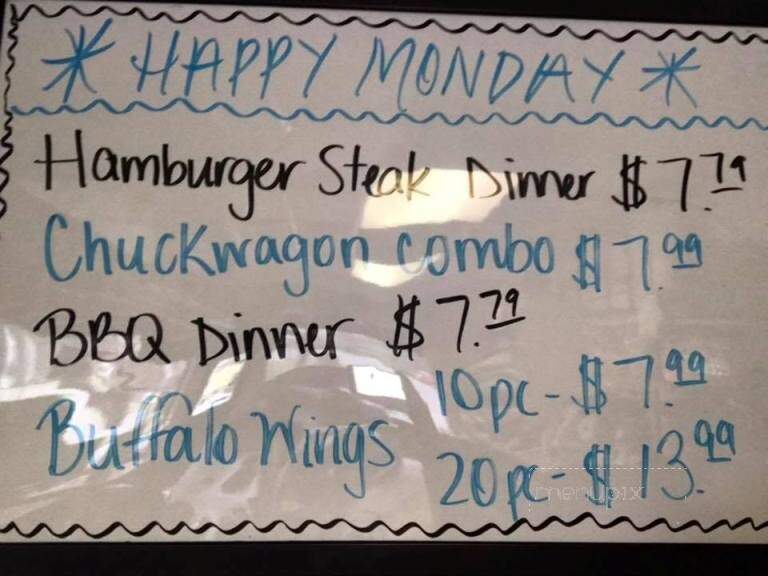 * HAPPY MONDAY *
Hamburger Steak Dinner $7.79
Chuckwagon combo $7.99
BBQ Dinner $7.79
Buffalo Wings 10pc-$7.99
20pc-$13.99
menupix